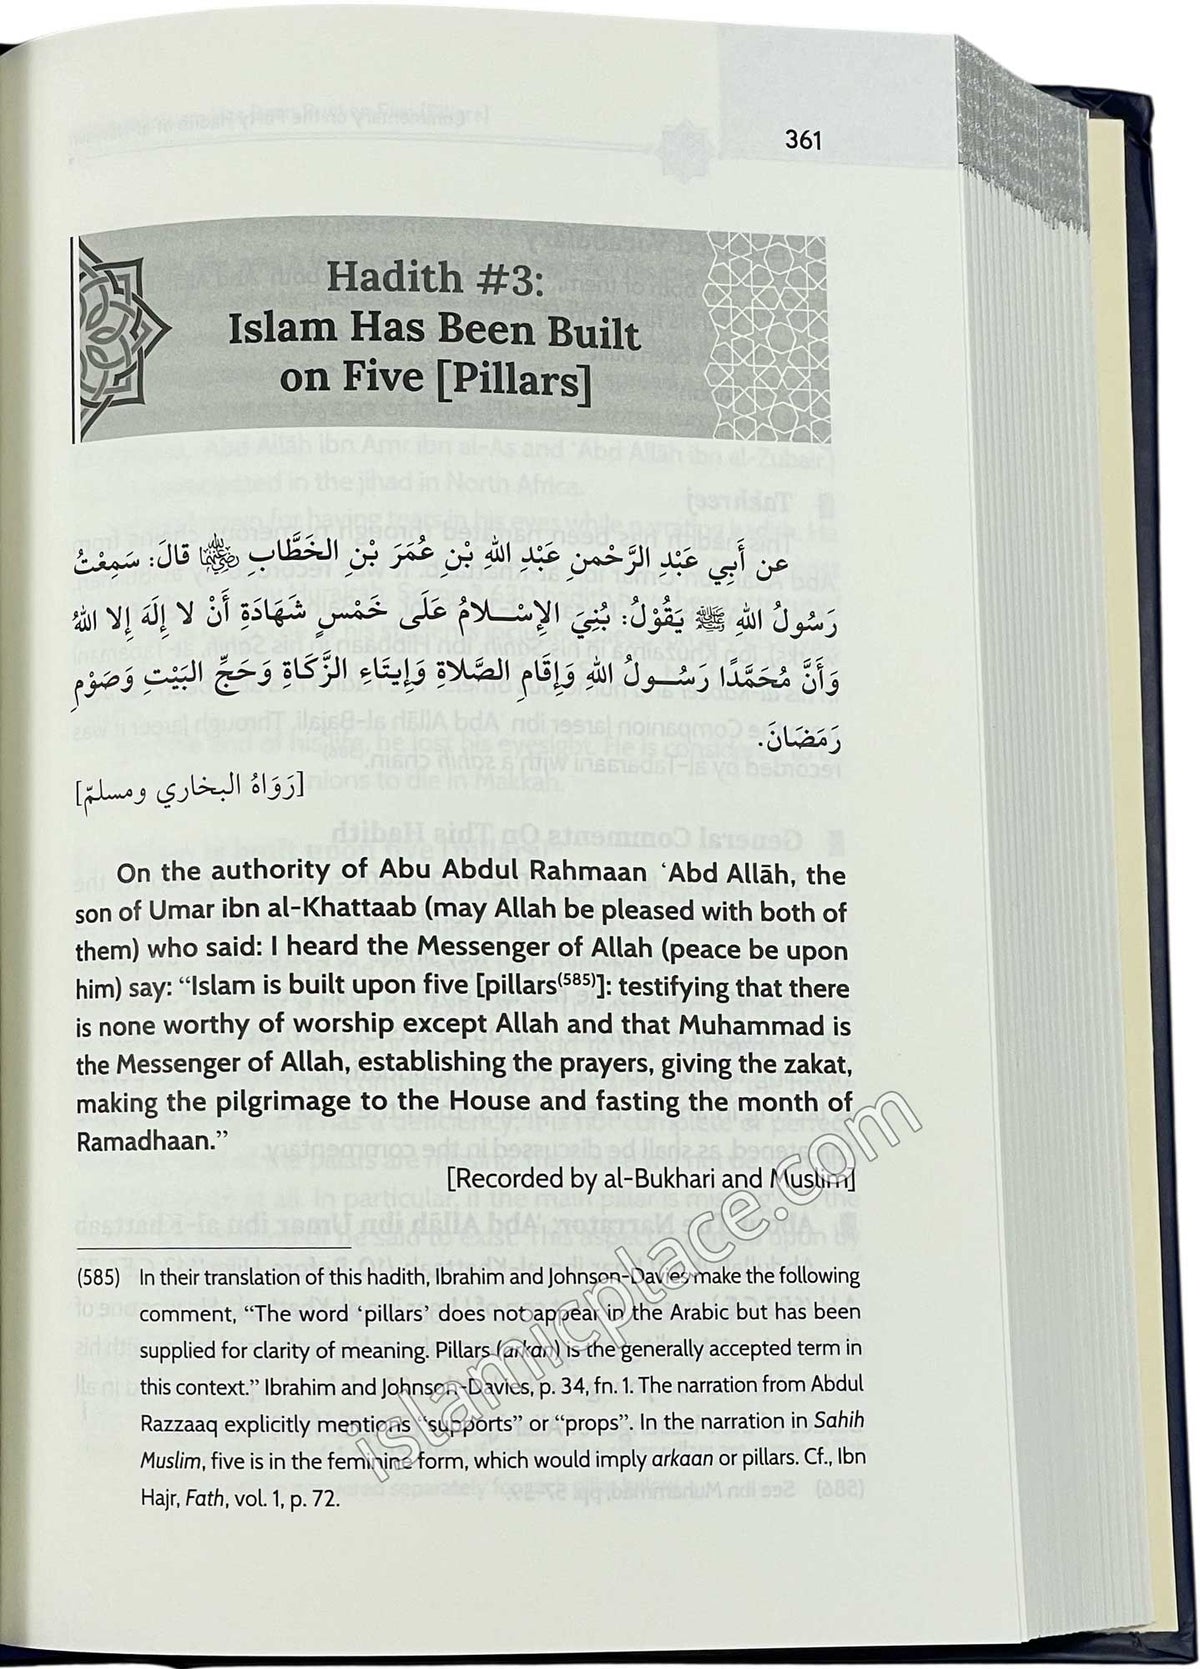 361
Hadith #3:
Islam Has Been Built
on Five [Pillars]
عن أَبِي عَبْدِ الرَّحْمنِ عَبْدِ اللهِ بْنِ عُمَرَ بْنِ الخَطَّابِ ﵁ قالَ: سَمِعْتُ
رَسُولُ اللهِ ﷺ يَقُوْلُ: بُنِيَ الإِسْـــلامُ عَلَى خَمْسٍ شَهَادَةِ أَنْ لا إِلَهَ إِلا اللهُ
وَأَنَّ مُحَمَّدًا رَسُـــولُ اللهِ وَإِقَامِ الصَّلاةِ وَإِيتَاءِ الزَّكَاةِ وَحَجِّ البَيْتِ وَصَوْمِ
رَمَضَانَ.
[رَوَاهُ البخاري ومسلمّ]
On the authority of Abu Abdul Rahmaan ‘Abd Allāh, the
son of Umar ibn al-Khattaab (may Allah be pleased with both of
them) who said: I heard the Messenger of Allah (peace be upon
him) say: “Islam is built upon five [pillars(585)]: testifying that there
is none worthy of worship except Allah and that Muhammad is
the Messenger of Allah, establishing the prayers, giving the zakat,
making the pilgrimage to the House and fasting the month of
Ramadhaan.”
[Recorded by al-Bukhari and Muslim]
(585) In their translation of this hadith, Ibrahim and Johnson-Davies make the following
comment, “The word ‘pillars’ does not appear in the Arabic but has been
supplied for clarity of meaning. Pillars (arkan) is the generally accepted term in
this context.” Ibrahim and Johnson-Davies, p. 34, fn. 1. The narration from Abdul
Razzaaq explicitly mentions “supports” or “props”. In the narration in Sahih
Muslim, five is in the feminine form, which would imply arkaan or pillars. Cf., Ibn
Hajr, Fath, vol. 1, p. 72.
islamicplace.com